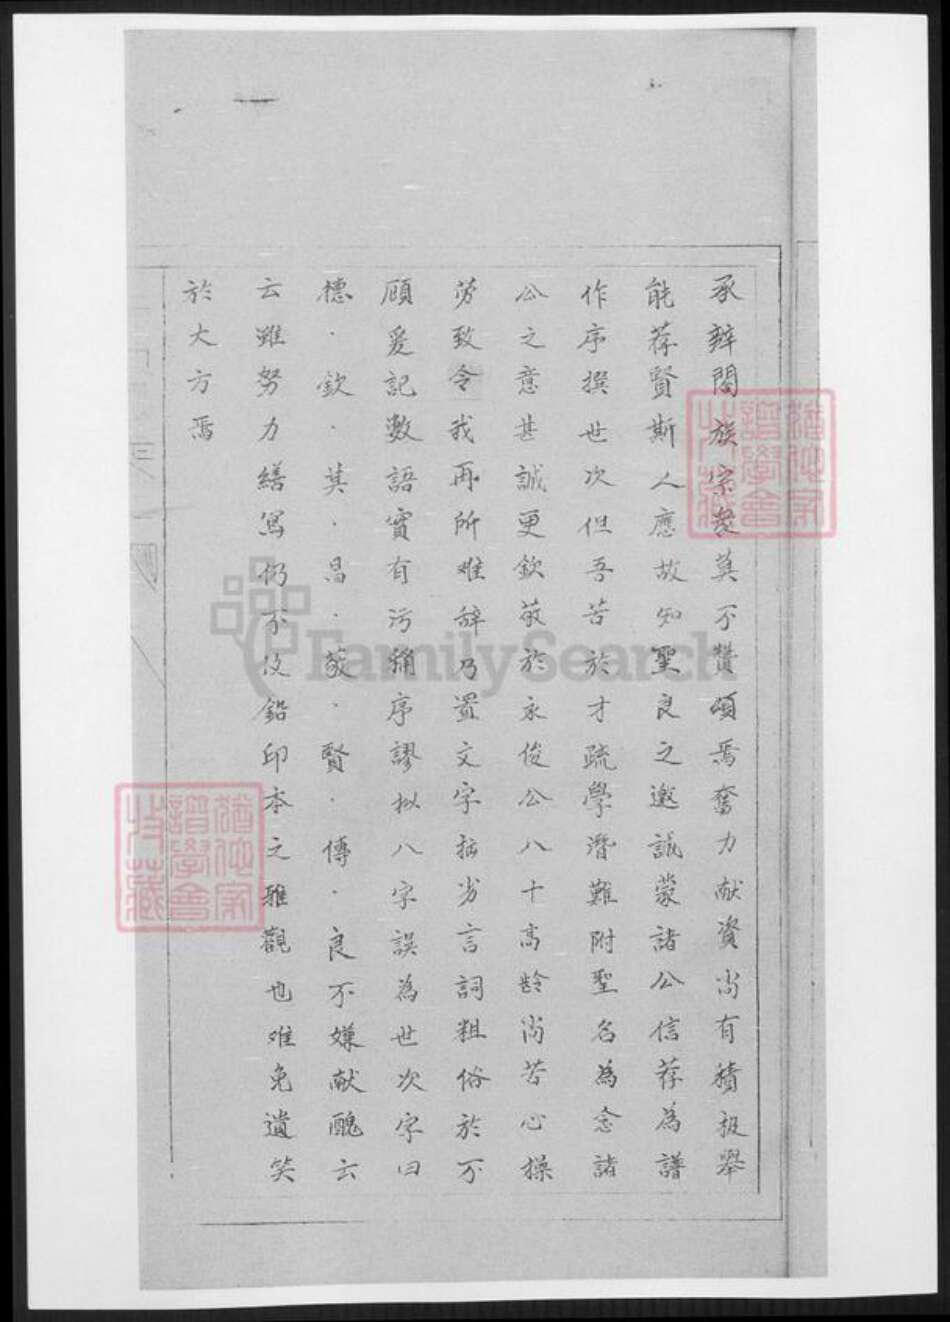 承辦閤族宗長莫不贊頌焉奮力献資尚有積极舉
能荐賢斯人應故知聖良之邀誠蒙諸公信荐為譜
作序撰世次但吾苦於才疏學潛難附聖名為念諸
公之意甚誠更欽敬於永俊公八十高齡尚苦心操
劳致令我再所难辞乃置文字拈劣言詞粗俗於不
顾爰記數語實有污稱序謬拟八字誤為世次字曰
德·欽·其·昌·蒙·賢·傳·良不嫌献醜云
云雖努力繕寫仍不及鉛印本之雅觀也难免遺笑
於大方焉
譜學會
收藏
譜學會
收藏
FamilySearch